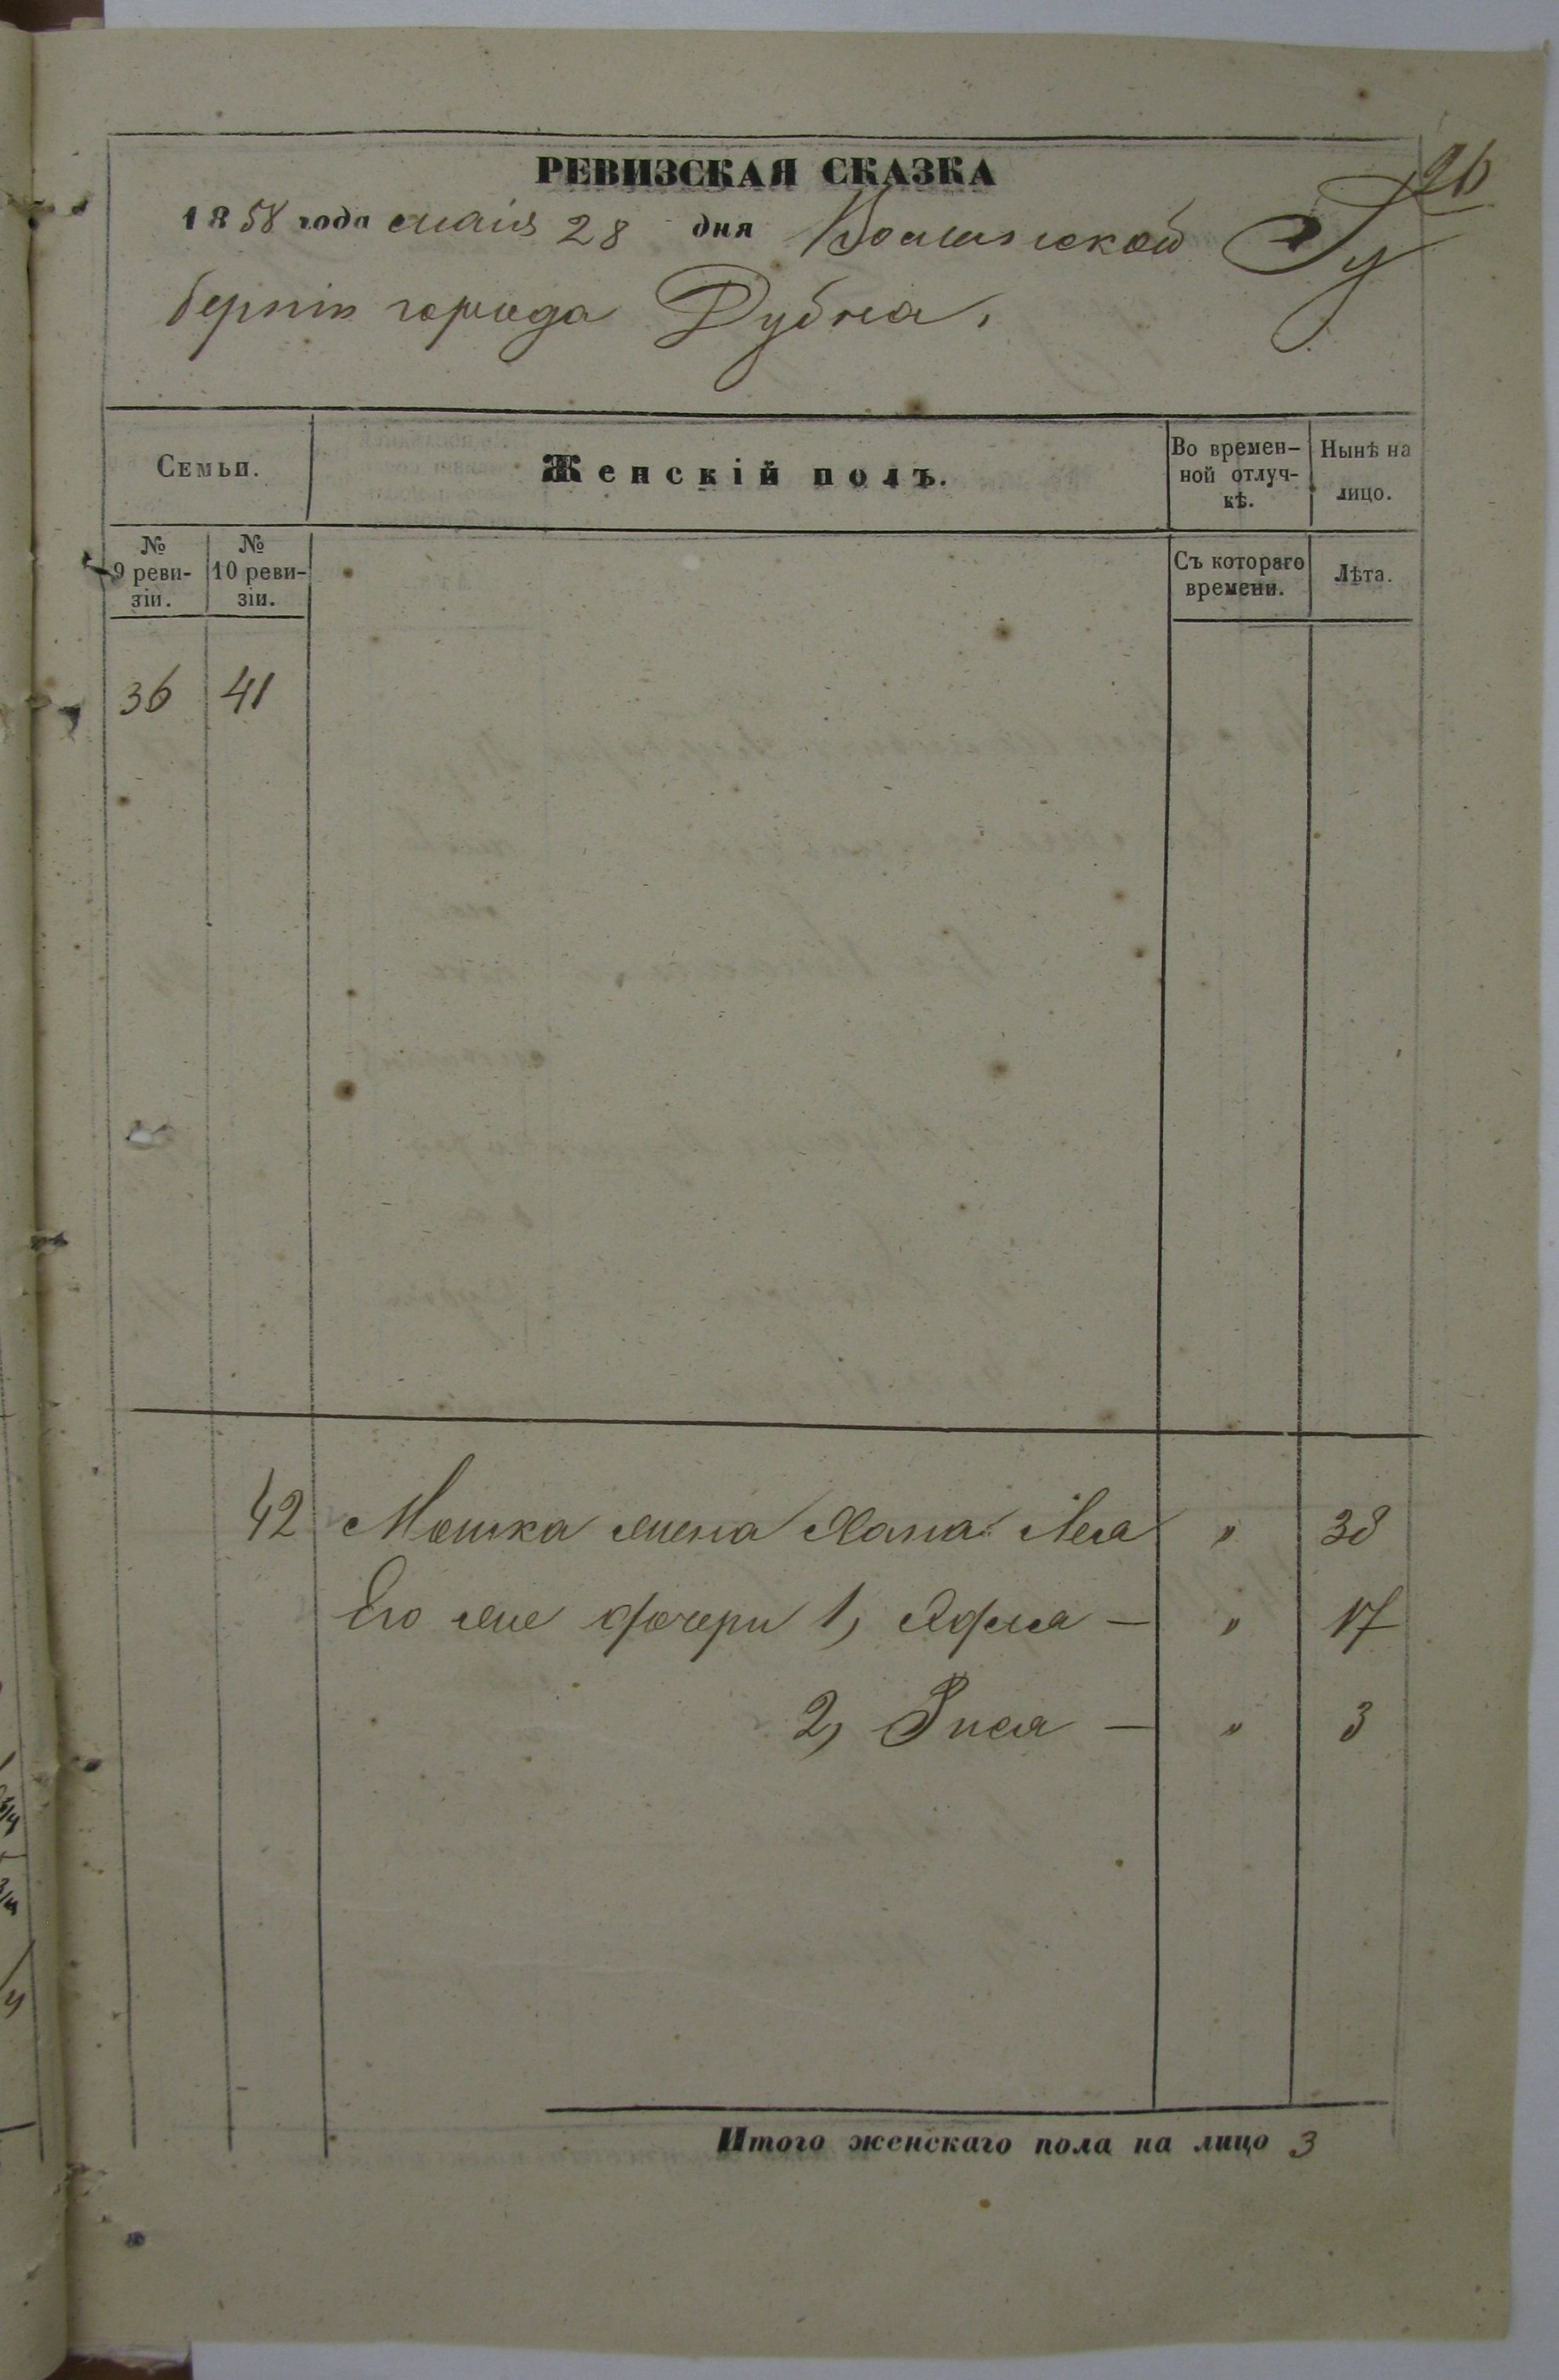 26
РЕВИЗСКАЯ СКАЗКА
1858 года маія 28 дня Волынской Гу
берніи города Дубна,
Семьи.
Женскій полъ.
Во времен-
ной отлуч-
кѣ.
Нынѣ на
лицо.
№
9 реви-
зіи.
№
10 реви-
зіи.
Съ котораго
времени.
Лѣта.
36 41
42 Мошка жена Хана Леа " 38
Его же дочери 1, Хфея — " 17
2, Рися — " 3
Итого женскаго пола на лицо 3